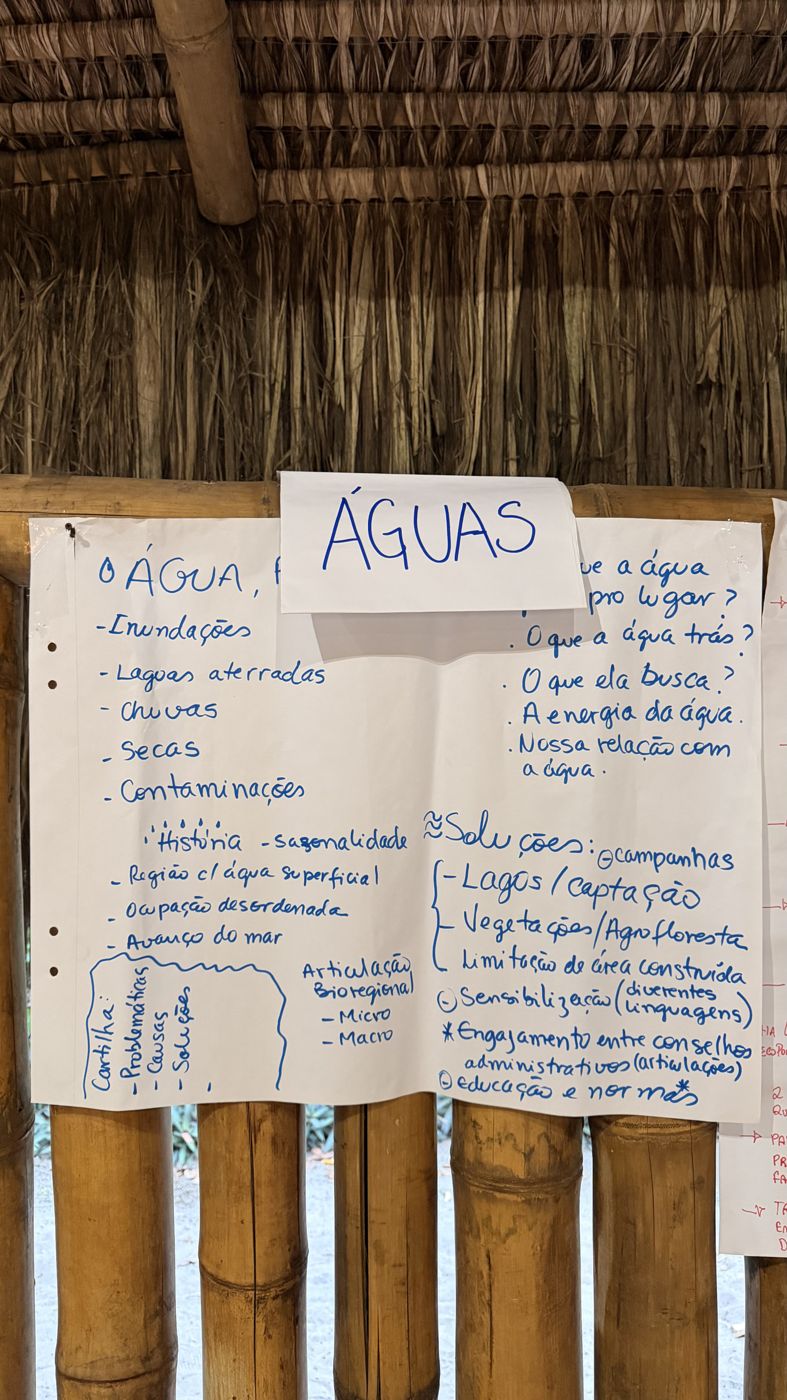 ÁGUAS
ÁGUA,
- Inundações
- Lagoas aterradas
- Chuvas
- Secas
- Contaminações
História - sazonalidade
- Região c/ água superficial
- Ocupação desordenada
- Avanço do mar
Cartilha:
- Problemáticas
- Causas
- Soluções
-
Articulação
Bioregional
- Micro
- Macro
a água
pro lugar?
. O que a água trás?
. O que ela busca?
. A energia da água.
. Nossa relação com
a água.
≈Soluções: ⊖campanhas
- Lagos/captação
- Vegetações/Agrofloresta
Limitação de área construída
⊖Sensibilização (diverentes
linguagens)
*Engajamento entre conselhos
administrativos (articulações)
⊖educação e normas*